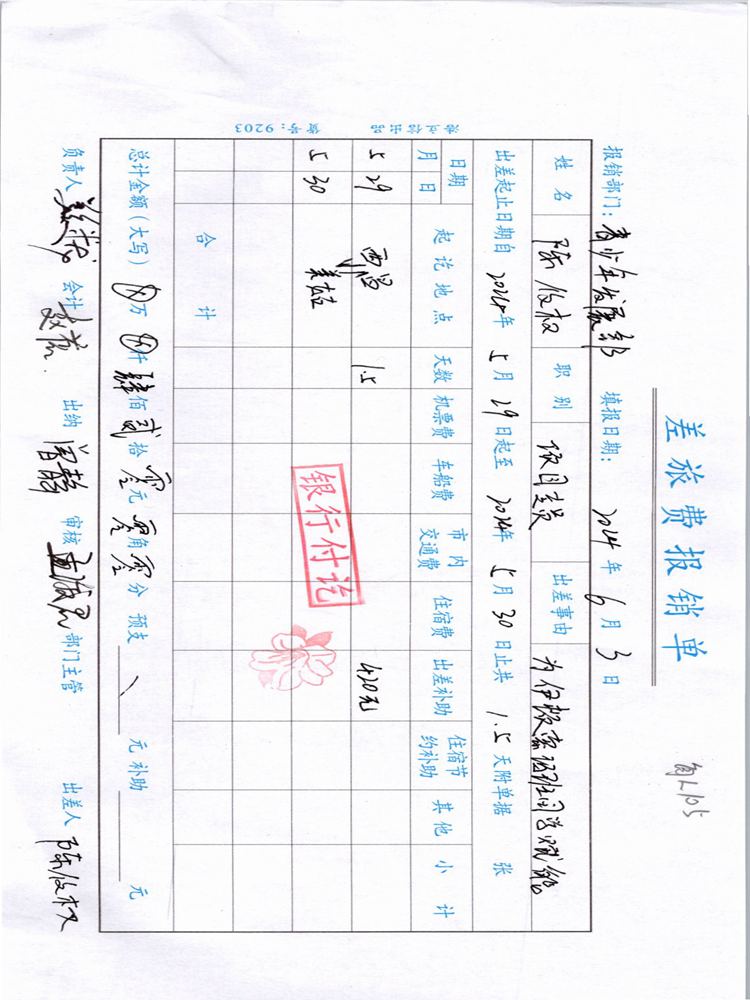 差旅费报销单
报销部门：青少年发展部 填报日期：2024年6月3日
姓名 陈俊权 职别 项目专员 出差事由
出差起止日期自2024年5月29日起至2024年5月30日止共1.5天附单据 张
日期 起讫地点 天数 机票费 车船费 市内交通费 住宿费 出差补助 住宿节约补助 其他 小计
月 日
5 29 西昌 1.5 420元
5 30 美姑
银行付讫
合计
总计金额（大写）⊗万⊗仟肆佰贰拾零元零角零分 预支 \ 元 补助 元
负责人 会计 出纳 审核 部门主管 出差人 陈俊权
9203